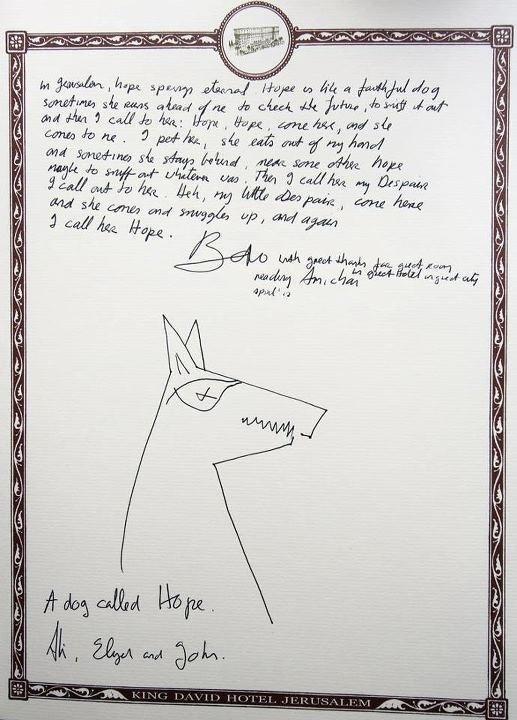 In Jerusalem, hope springs eternal Hope is like a faithful dog
sometimes she runs ahead of me to check the future, to sniff it out
and then I call to her: Hope, Hope, come here, and she
comes to me. I pet her, she eats out of my hand
and sometimes she stays behind, near some other hope
maybe to sniff out whatever was. Then I call her my Despair
I call out to her. Heh, my little Despair, come here
and she comes and snuggles up, and again
I call her Hope.
Bono with great thanks for great room
reading Amichai in great Hotel in great city
A dog called Hope.
Ali, and John.
KING DAVID HOTEL JERUSALEM